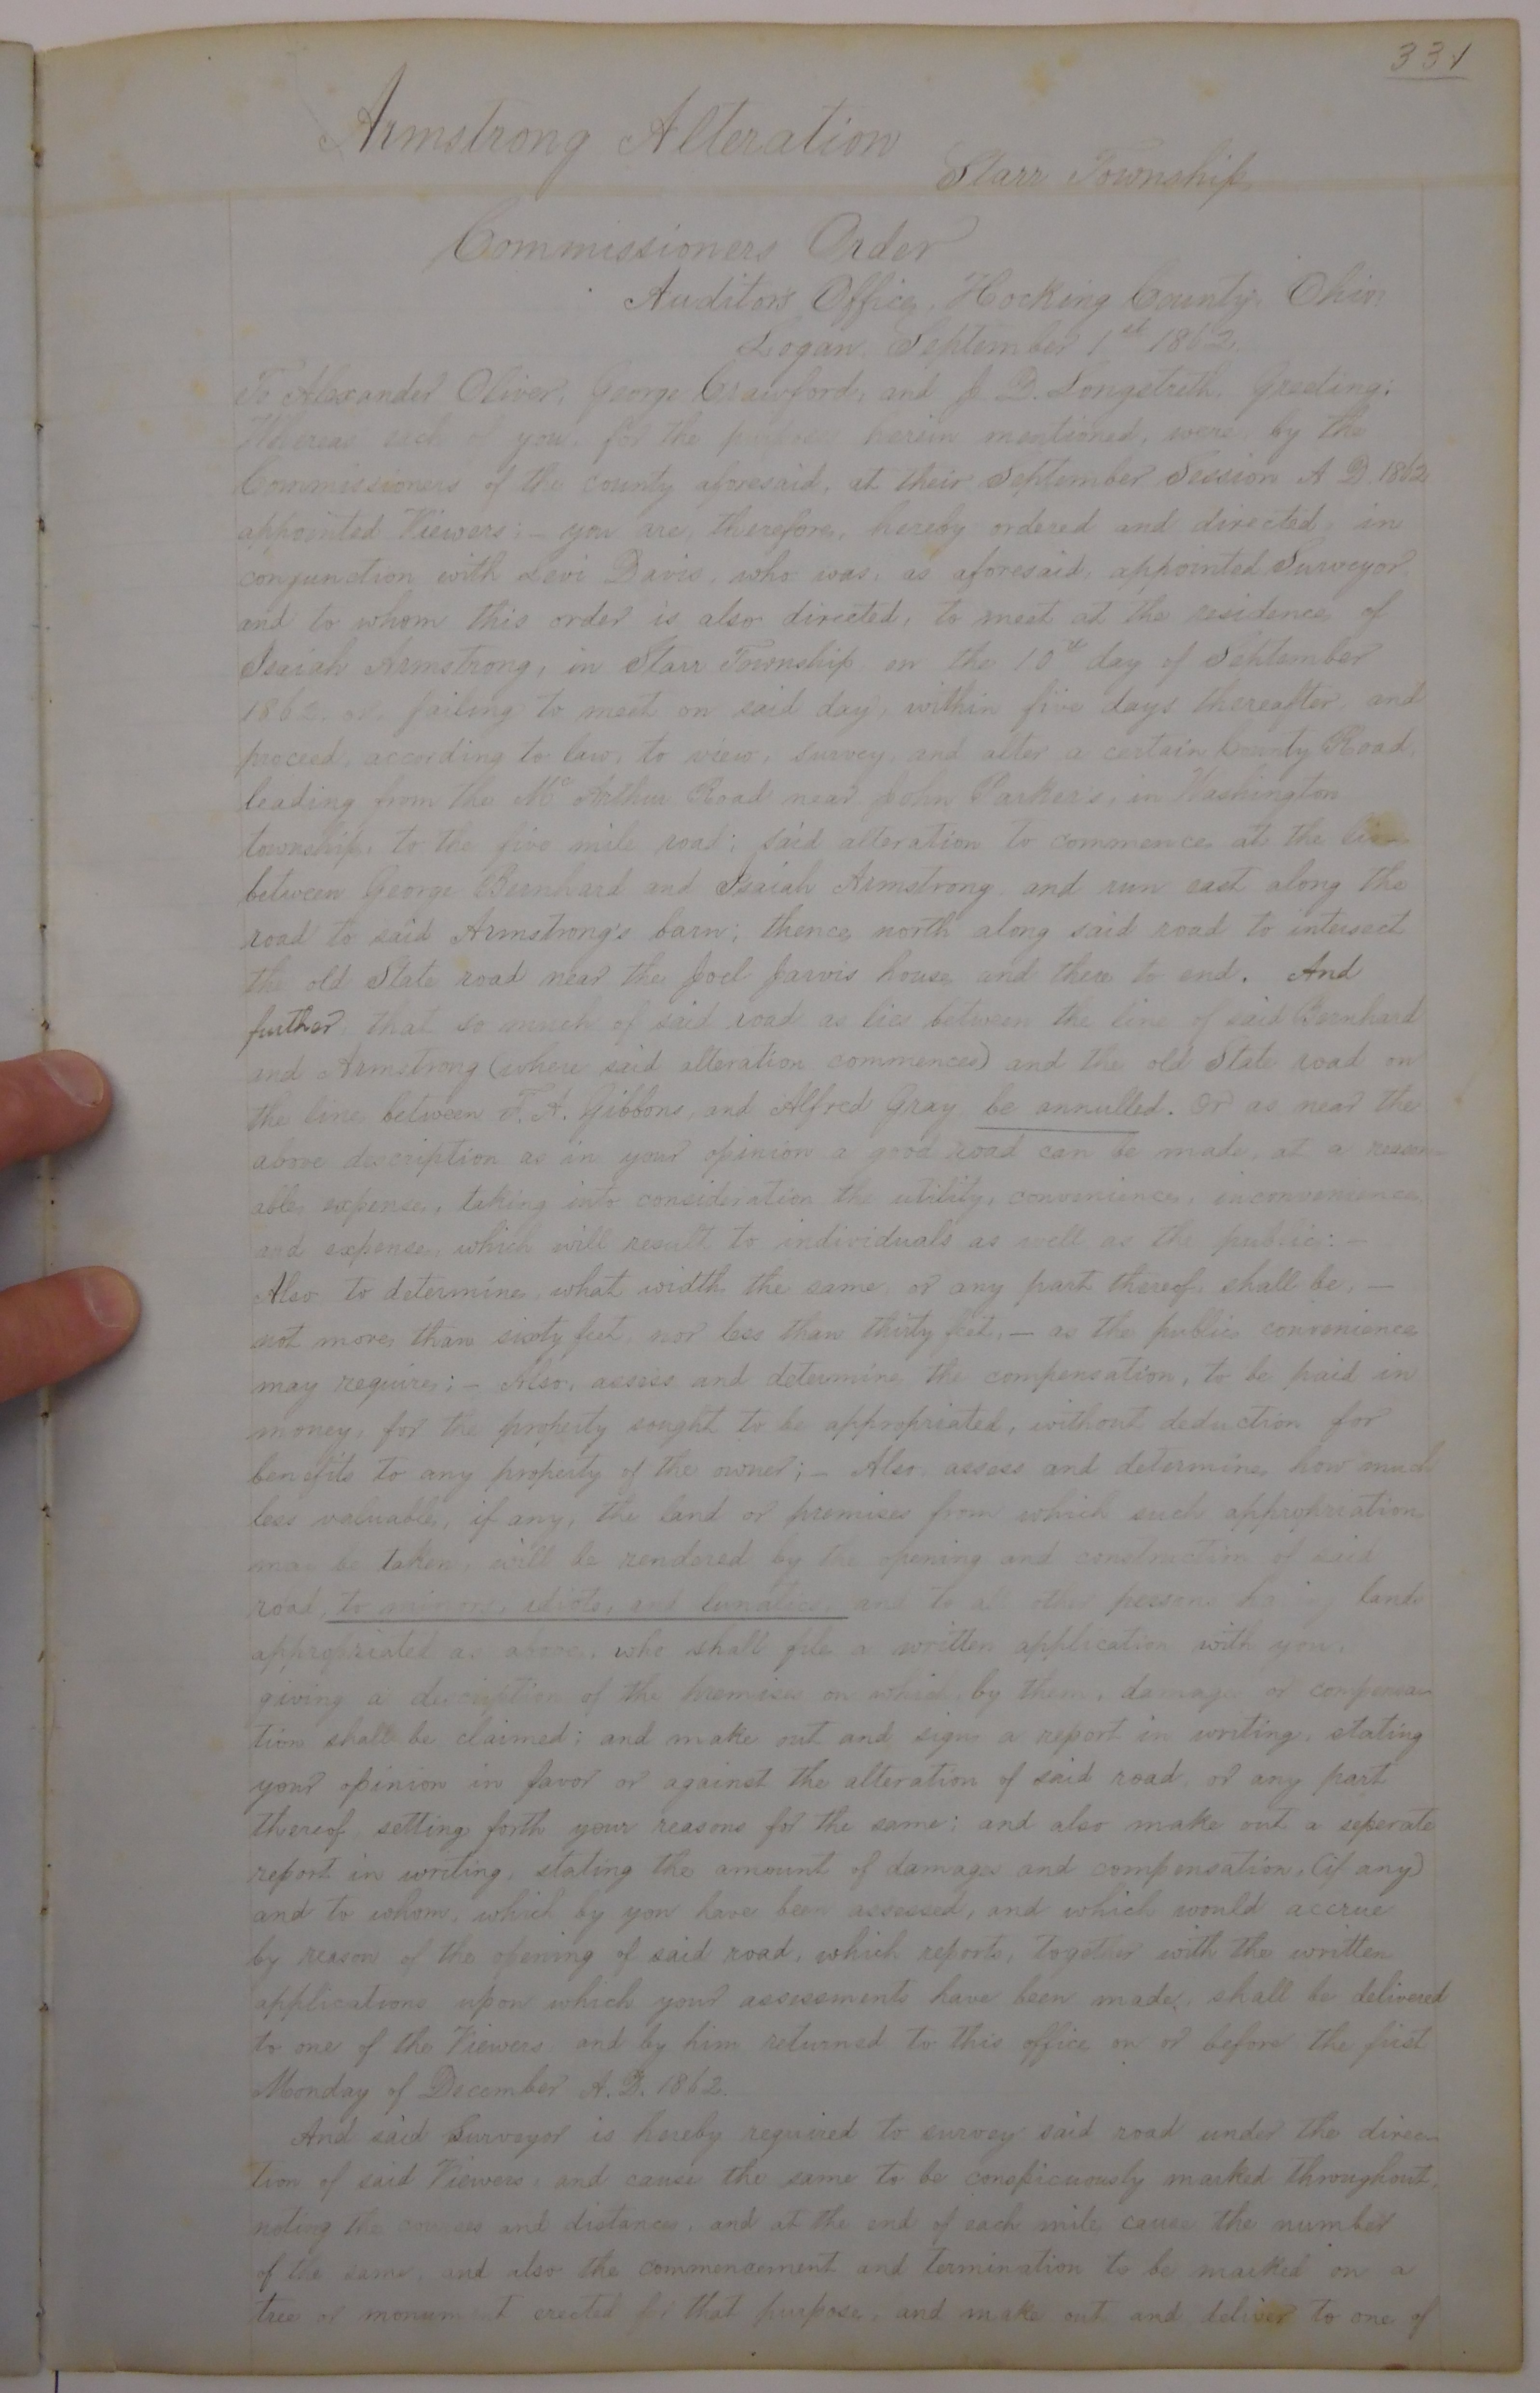 331
Armstrong Alteration
Starr Township
Commissioners Order
Auditor's Office, Hocking County, Ohio
Logan, September 1st 1862.
To Alexander Oliver, George Crawford, and J. D. Longstreth. Greeting:
Whereas each of you, for the purposes herein mentioned, were, by the
Commissioners of the county aforesaid, at their September Session A D. 1862
appointed Viewers:- you are, therefore, hereby ordered and directed, in
conjunction with Levi Davis, who was, as aforesaid, appointed Surveyor,
and to whom this order is also directed, to meet at the residence of
Isaiah Armstrong, in Starr Township on the 10th day of September
1862, or, failing to meet on said day, within five days thereafter, and
proceed, according to law, to view, survey, and alter a certain County Road,
leading from the Mc Arthur Road near John Parker's, in Washington
township, to the five mile road; said alteration to commence at the line
between George Bernhard and Isaiah Armstrong and run east along the
road to said Armstrong's barn; thence north along said road to intersect
the old State road near the Joel Jarvis house and there to end. And
further, that so much of said road as lies between the line of said Bernhard
and Armstrong (where said alteration commences) and the old State road on
the line between T. A. Gibbons, and Alfred Gray be annulled. Or as near the
above description as in your opinion a good road can be made, at a reason-
able expense, taking into consideration the utility, convenience, inconvenience
and expense, which will result to individuals as well as the public:-
Also to determine, what width the same, or any part thereof, shall be, -
not more than sixty feet, nor less than thirty feet, - as the public convenience
may require; - Also, assess and determine the compensation, to be paid in
money, for the property sought to be appropriated, without deduction for
benefits to any property of the owner; - Also, assess and determine, how much
less valuable, if any, the land or premises from which such appropriation
may be taken, will be rendered by the opening and construction of said
road, to minors, idiots, and lunatics, and to all other persons having lands
appropriated as above, who shall file a written application with you,
giving a description of the premises on which, by them, damages or compensa-
tion shall be claimed; and make out and sign a report in writing, stating
your opinion in favor or against the alteration of said road, or any part
thereof, setting forth your reasons for the same; and also make out a seperate
report in writing, stating the amount of damages and compensation, (if any)
and to whom, which by you have been assessed, and which would accrue
by reason of the opening of said road, which reports, together with the written
applications upon which your assessments have been made, shall be delivered
to one of the Viewers and by him returned to this office on or before the first
Monday of December A. D. 1862.
And said Surveyor is hereby required to survey said road under the direc-
tion of said Viewers, and cause the same to be conspicuously marked throughout,
noting the courses and distances, and at the end of each mile, cause the number
of the same, and also the commencement and termination to be marked on a
tree or monument erected for that purpose, and make out and deliver to one of